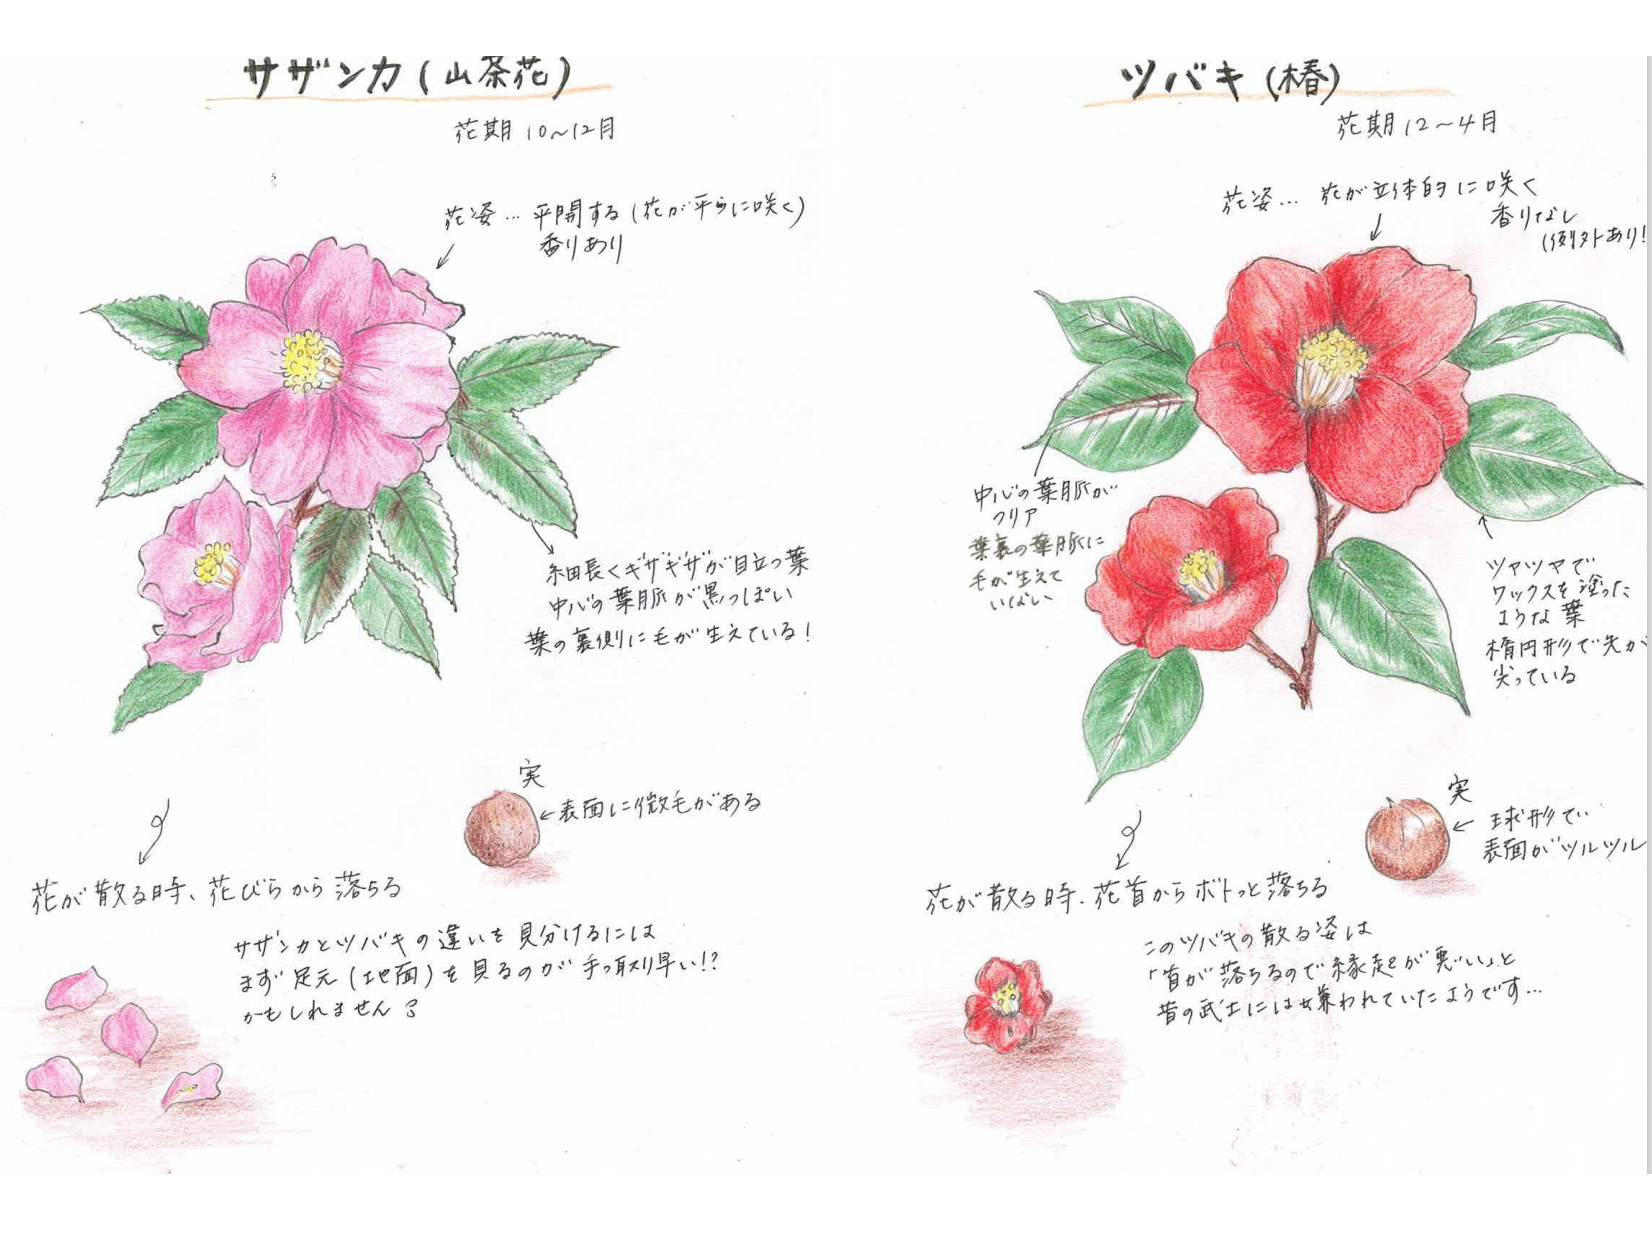 サザンカ(山茶花)
花期10~12月
花姿… 平開する(花が平らに咲く)
香りあり
細長くギザギザが目立つ葉
中心の葉脈が黒っぽい
葉の裏側に毛が生えている!
実
←表面に微毛がある
花が散る時、花びらから落ちる
サザンカとツバキの違いを見分けるには
まず足元(地面)を見るのが手っ取り早い!?
かもしれません
ツバキ(椿)
花期12~4月
花姿… 花が立体的に咲く
香りなし
(例外あり!
中心の葉脈が
クリア
葉裏の葉脈に
毛が生えて
いない
ツヤツヤで
ワックスを塗った
ような葉
楕円形で先が
尖っている
実
← 球形で
表面がツルツル
花が散る時、花首からボトっと落ちる
このツバキの散る姿は
「首が落ちるので縁起が悪い」と
昔の武士には嫌われていたようです…